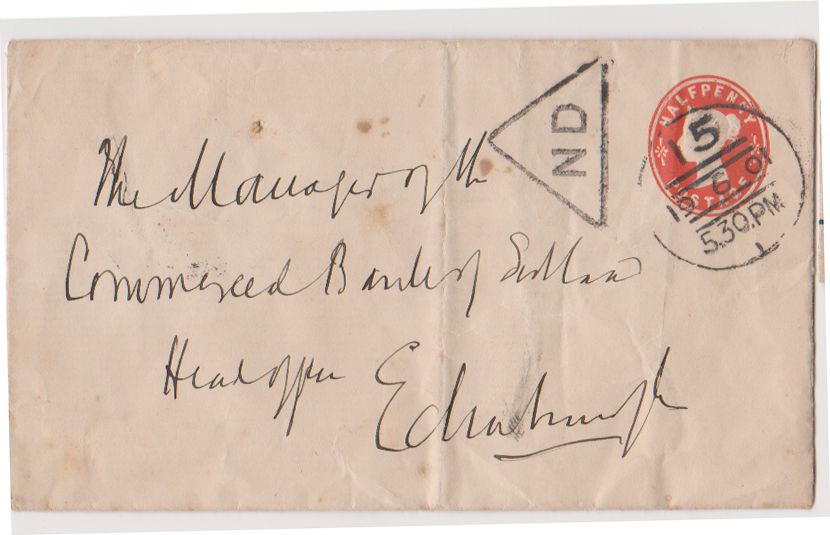 The Manager of the
Commercial Bank of Scotland
Head office
Edinburgh
ND
HALFPENNY
POSTAGE
15
6 01
5.30.PM